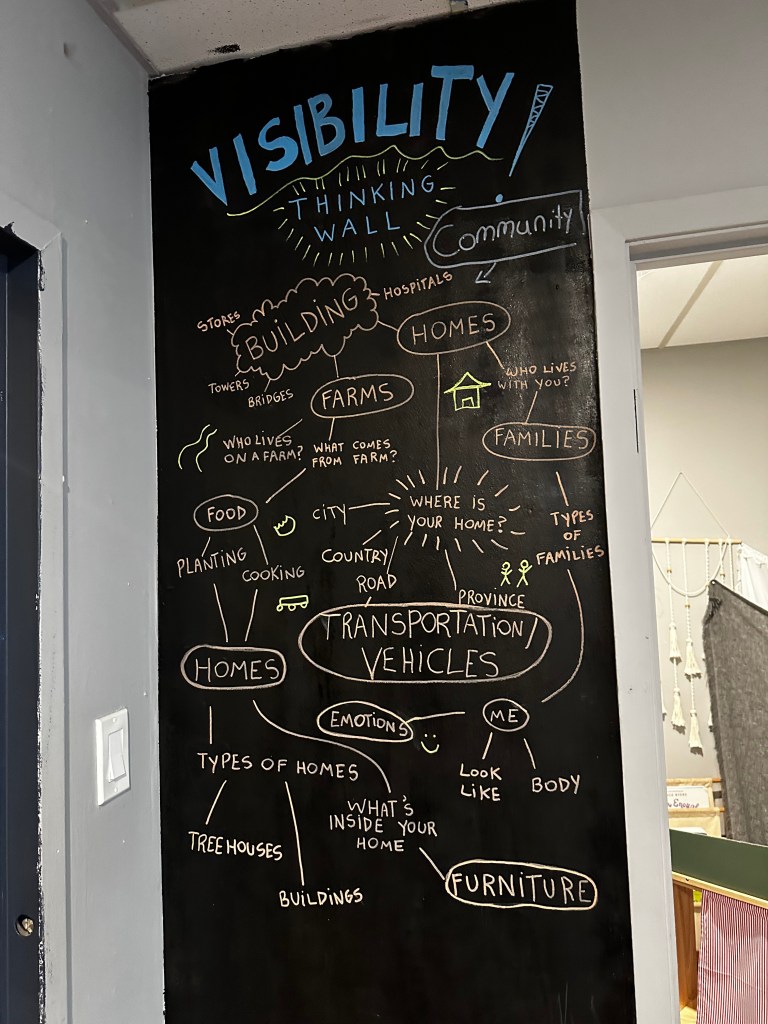 VISIBILITY
THINKING
WALL
Community
HOSPITALS
STORES
BUILDING
HOMES
TOWERS
BRIDGES
WHO LIVES
WITH YOU?
FARMS
FAMILIES
WHO LIVES
ON A FARM?
WHAT COMES
FROM FARM?
FOOD
CITY
WHERE IS
YOUR HOME?
TYPES
OF
FAMILIES
PLANTING
COOKING
COUNTRY
ROAD
PROVINCE
TRANSPORTATION/
VEHICLES
HOMES
EMOTIONS
ME
LOOK
LIKE
BODY
TYPES OF HOMES
WHAT'S
INSIDE YOUR
HOME
TREEHOUSES
BUILDINGS
FURNITURE